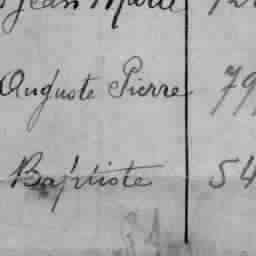 Jean Marie 12
Auguste Pierre 79
Baptiste 54